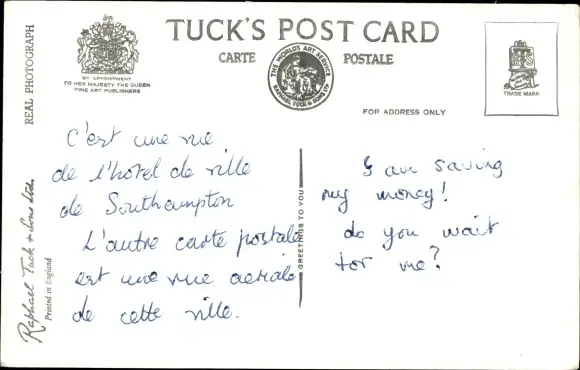 TUCK'S POST CARD
CARTE POSTALE
REAL PHOTOGRAPH
BY APPOINTMENT
TO HER MAJESTY THE QUEEN
FINE ART PUBLISHERS
THE WORLD'S ART SERVICE
RAPHAEL TUCK & SONS LTD
TRADE MARK
FOR ADDRESS ONLY
C'est une vue
de l'hotel de ville
de Southampton
L'autre carte postale
est une vue aeriale
de cette ville.
GREETINGS TO YOU
I am saving
my money!
do you wait
for me?
Raphael Tuck & Sons Ltd.
Printed in England